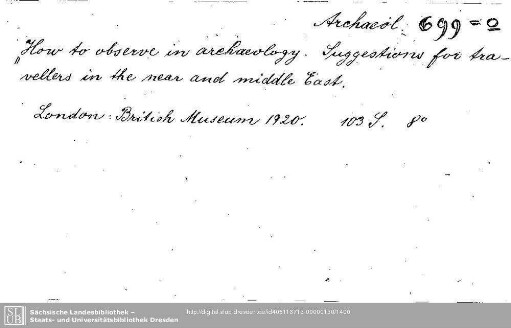 Archaeol. 699 = o
"How to observe in archaeology. Suggestions for tra-
vellers in the near and middle East.
London: British Museum 1920. 103 S. 8°
Sächsische Landesbibliothek –
Staats- und Universitätsbibliothek Dresden